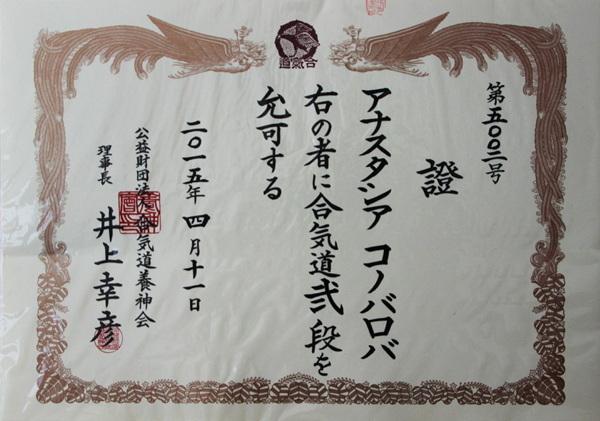 合気道
第五〇〇二号
證
アナスタシア コノバロバ
右の者に合気道弐段を
允可する
二〇一五年 四月十一日
公益財団法人 合気道養神会
理事長 井上幸彦